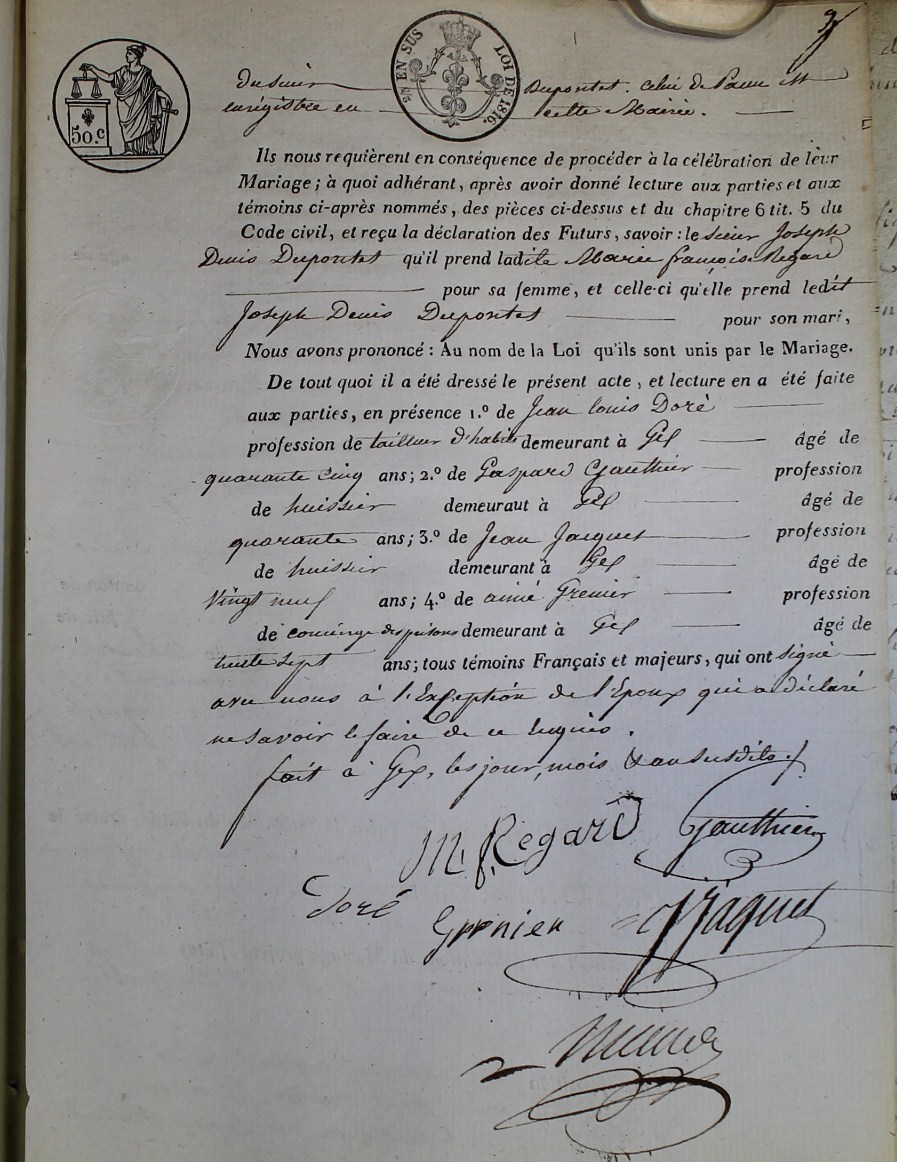 3
50.c
EN SUS LOI DE 1816.
du Sieur Dupontet. celui de Paume est
enrégistrée en cette Mairie.
Ils nous requièrent en conséquence de procéder à la célébration de leur
Mariage ; à quoi adhérant, après avoir donné lecture aux parties et aux
témoins ci-après nommés, des pièces ci-dessus et du chapitre 6 tit. 5 du
Code civil, et reçu la déclaration des Futurs, savoir : le sieur Joseph
Denis Dupontet qu'il prend ladite Marie françoise Regard
pour sa femme, et celle-ci qu'elle prend ledit
Joseph Denis Dupontet pour son mari,
Nous avons prononcé : Au nom de la Loi qu'ils sont unis par le Mariage.
De tout quoi il a été dressé le présent acte, et lecture en a été faite
aux parties, en présence 1.o de Jean louis Doré
profession de tailleur d'habits demeurant à Gex âgé de
quarante cinq ans ; 2.o de Gaspard Gauthier profession
de huissier demeuraut à Gex âgé de
quarante ans ; 3.o de Jean Jacquet profession
de huissier demeurant à Gex âgé de
Vingt neuf ans ; 4.o de aimé Grenier profession
de concierge des prisons demeurant à Gex âgé de
trente sept ans ; tous témoins Français et majeurs, qui ont signé
avec nous à l'Exception de l'Epoux qui a déclaré
ne savoir le faire de ce requis.
fait à Gex, les jour, mois & an susdits.
M. f. Regard Gauthier
Doré Grenier J Jaquet